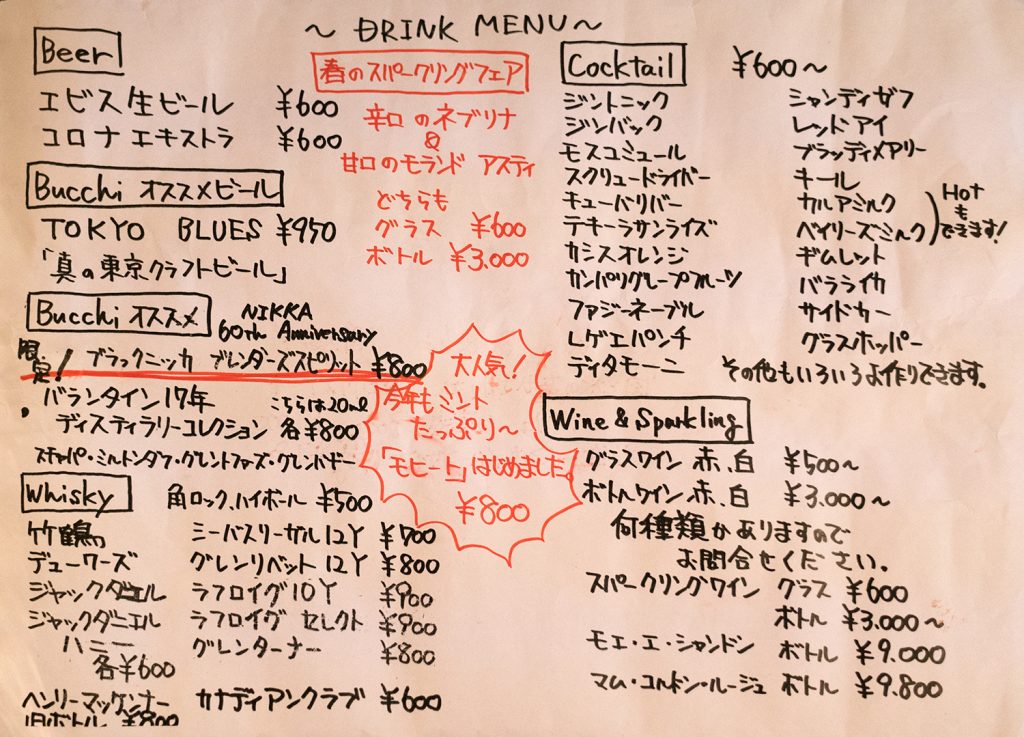 〜 DRINK MENU 〜
Beer
エビス生ビール ¥600
コロナ エキストラ ¥600
Bucchi オススメビール
TOKYO BLUES ¥950
「真の東京クラフトビール」
Bucchi オススメ
NIKKA
60th Anniversary
限定! ブラックニッカ ブレンダーズスピリット ¥800
バランタイン17年 こちらは20ml
ディスティラリーコレクション 各¥800
スキャパ・ミルトンダフ・グレントファーズ・グレンバギー
Whisky
角ロック、ハイボール ¥500
竹鶴 シーバスリーガル12Y ¥700
デューワーズ グレンリベット12Y ¥800
ジャックダニエル ラフロイグ10Y ¥900
ジャックダニエル ラフロイグ セレクト ¥900
ハニー グレンターナー ¥800
各¥600
ヘンリーマッケンナー カナディアンクラブ ¥600
旧ボトル ¥800
春のスパークリングフェア
辛口 のネブリナ
&
甘口のモランド アスティ
どちらも
グラス ¥600
ボトル ¥3.000
大人気!
今年もミント
たっぷり〜
「モヒート」はじめました。
¥800
Cocktail ¥600〜
ジントニック シャンディガフ
ジンバック レッドアイ
モスコミュール ブラッディメアリー
スクリュードライバー キール
キューバリバー カルアミルク
テキーラサンライズ ベイリーズミルク
Hotもできます!
カシスオレンジ ギムレット
カンパリグレープフルーツ バラライカ
ファジーネーブル サイドカー
Lゲエパンチ グラスホッパー
ディタモーニ その他もいろいろお作りできます。
Wine & Sparkling
グラスワイン 赤、白 ¥500〜
ボトルワイン 赤、白 ¥3.000〜
何種類かありますので
お問合せください。
スパークリングワイン グラス ¥600
ボトル ¥3.000〜
モエ・エ・シャンドン ボトル ¥9.000
マム・コルドン・ルージュ ボトル ¥9.800